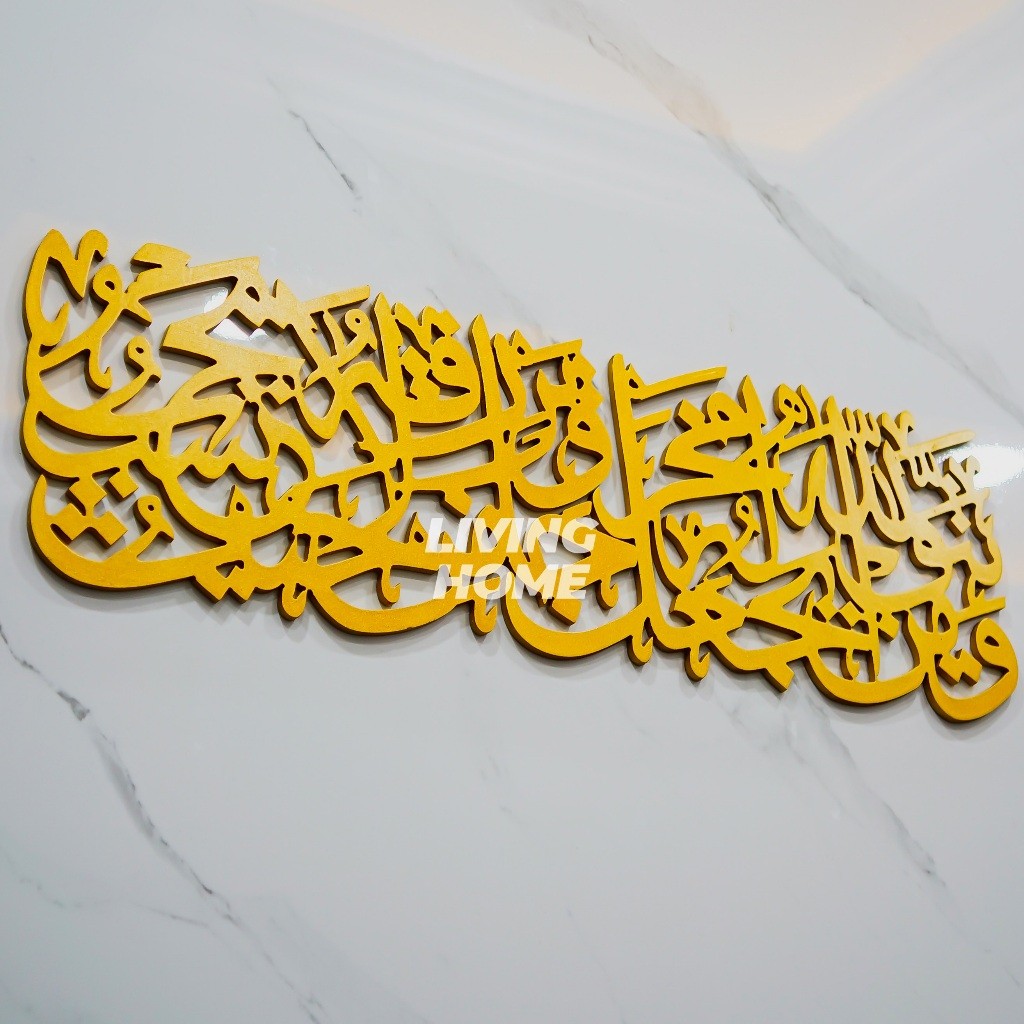 ومن يتق الله يجعل له مخرجا ويرزقه من حيث لا يحتسب
LIVING
HOME